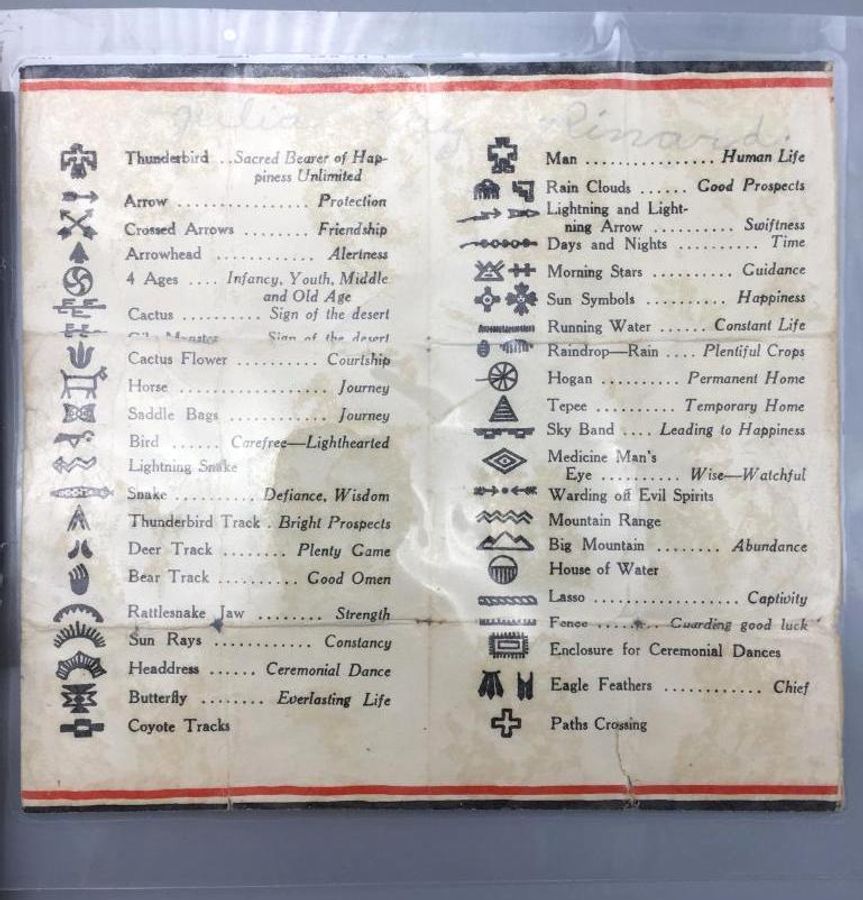 Julia Kay Rinard.
Thunderbird ..Sacred Bearer of Hap-
piness Unlimited
Arrow ................ Protection
Crossed Arrows ........ Friendship
Arrowhead ............ Alertness
4 Ages .... Infancy, Youth, Middle
and Old Age
Cactus .......... Sign of the desert
Gila Monster Sign of the desert
Cactus Flower ......... Courtship
Horse .................. Journey
Saddle Bags ............ Journey
Bird ...... Carefree—Lighthearted
Lightning Snake
Snake ......... Defiance, Wisdom
Thunderbird Track . Bright Prospects
Deer Track ........ Plenty Game
Bear Track .......... Good Omen
Rattlesnake Jaw ........ Strength
Sun Rays ............ Constancy
Headdress ...... Ceremonial Dance
Butterfly ........ Everlasting Life
Coyote Tracks
Man ................ Human Life
Rain Clouds ...... Good Prospects
Lightning and Light-
ning Arrow .......... Swiftness
Days and Nights .......... Time
Morning Stars ........ Guidance
Sun Symbols .......... Happiness
Running Water ...... Constant Life
Raindrop—Rain .... Plentiful Crops
Hogan .......... Permanent Home
Tepee .......... Temporary Home
Sky Band .... Leading to Happiness
Medicine Man's
Eye .......... Wise—Watchful
Warding off Evil Spirits
Mountain Range
Big Mountain ........ Abundance
House of Water
Lasso .................. Captivity
Fence ........ Guarding good luck
Enclosure for Ceremonial Dances
Eagle Feathers ............ Chief
Paths Crossing